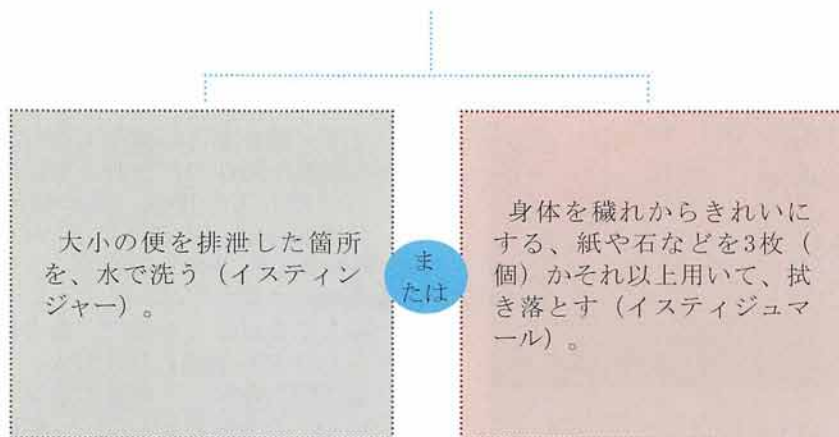 大小の便を排泄した箇所
を、水で洗う（イスティン
ジャー）。
ま
たは
身体を穢れからきれいに
する、紙や石などを3枚（
個）かそれ以上用いて、拭
き落とす（イスティジュマ
ール）。